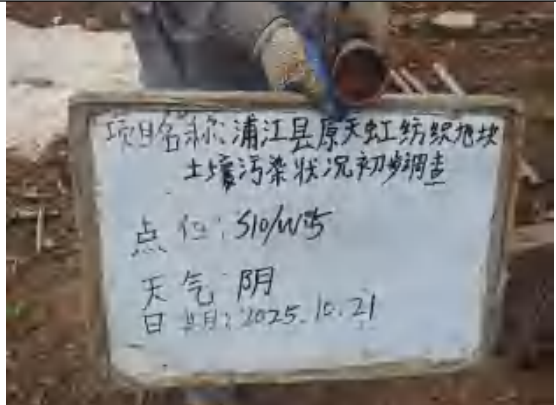 项目名称:浦江县原天虹纺织地块
土壤污染状况初步调查
点位:S10/W5
天气:阴
日期:2025.10.21